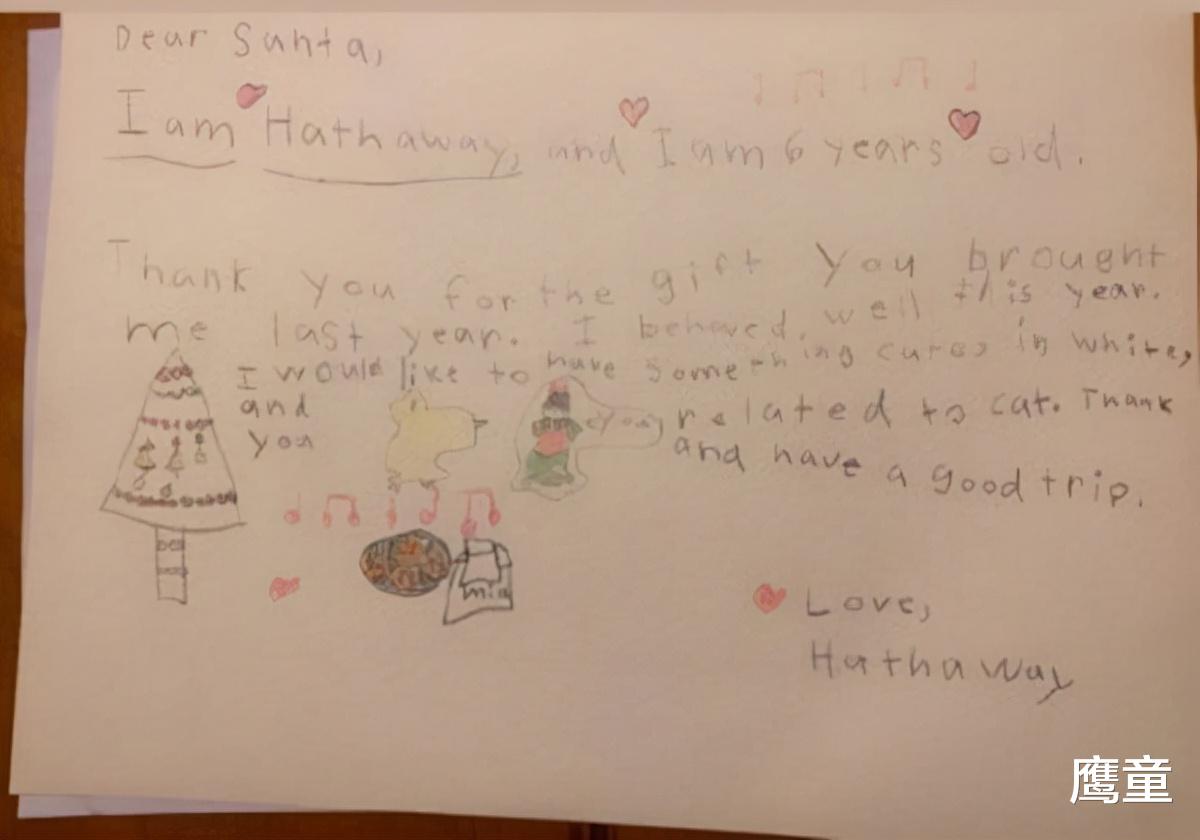 Dear Santa,
I am Hathaway, and I am 6 years old.
Thank you for the gift you brought
me last year. I behaved well this year.
I would like to have something in white,
and related to cat. Thank
you and have a good trip.
Love,
Hathaway
鹰童